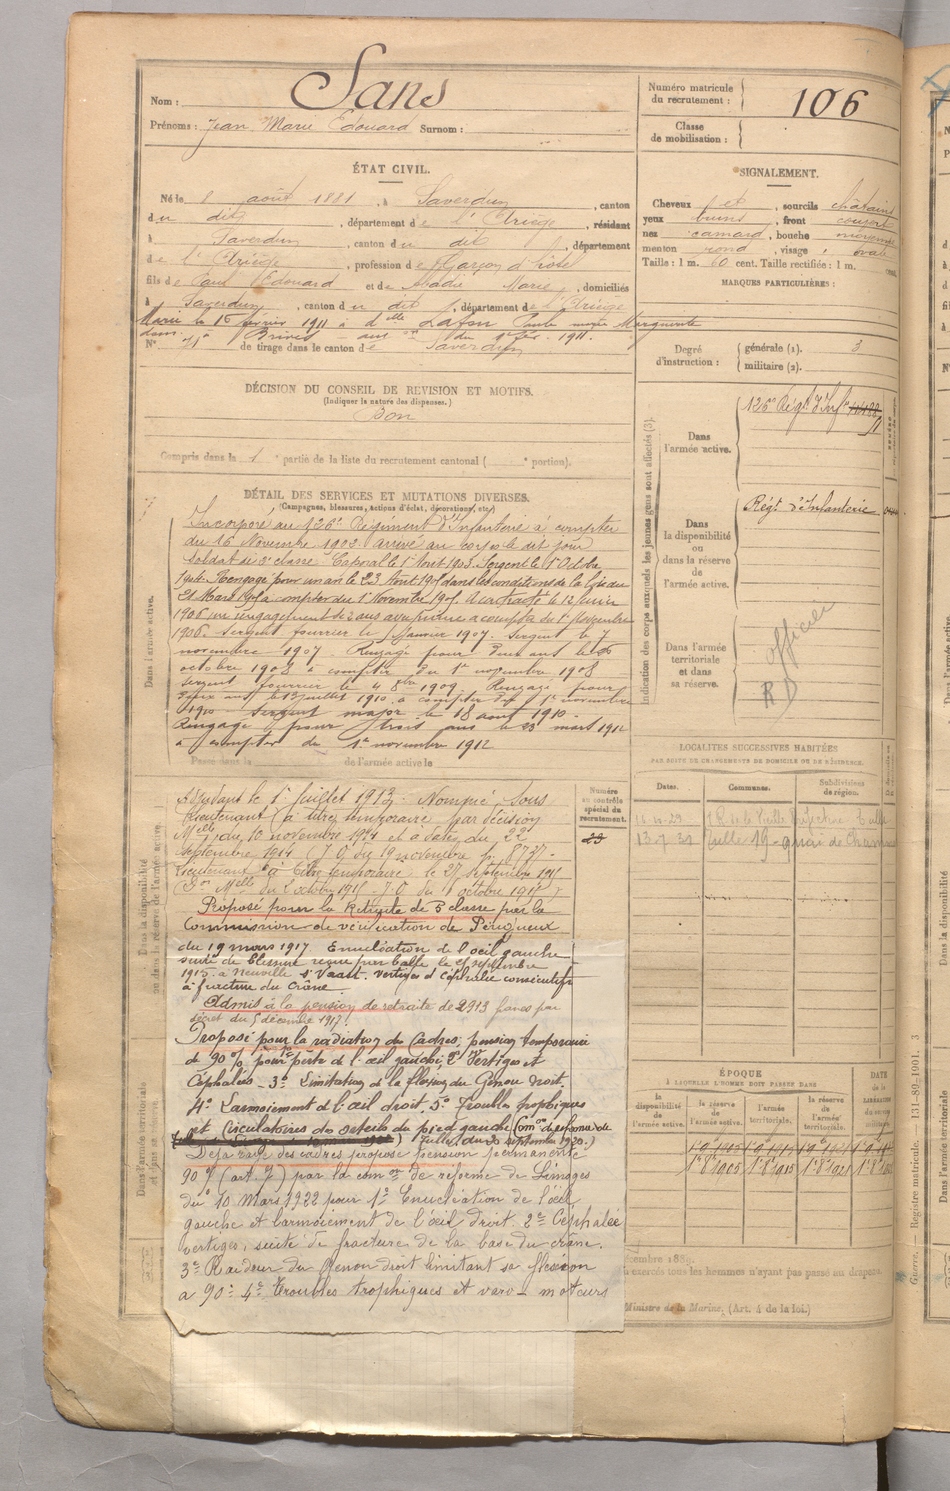 Nom : Sans
Prénoms : Jean Marie Edouard Surnom :
Numéro matricule du recrutement : 106
Classe de mobilisation :
ÉTAT CIVIL.
Né le 8 août 1881, à Saverdun, canton
du dit, département de l'Ariège, résidant
à Saverdun, canton du dit, département
de l'Ariège, profession de Garçon d'hôtel
fils de Paul Edouard et de Abadie Marie, domiciliés
à Saverdun, canton du dit, département de l'Ariège
Marié le 16 février 1911 à dlle Lafon Marguerite
dans Brives
N° de tirage dans le canton de Saverdun
SIGNALEMENT.
Cheveux et, sourcils châtains
yeux bruns, front couvert
nez camard, bouche moyenne
menton rond, visage ovale
Taille : 1 m. 60 cent. Taille rectifiée : 1 m.
MARQUES PARTICULIÈRES :
Degré d'instruction : générale (1). 3
militaire (2).
DÉCISION DU CONSEIL DE REVISION ET MOTIFS.
(Indiquer la nature des dispenses.)
Bon
Compris dans la 1e partie de la liste du recrutement cantonal ( e portion).
Indication des corps auxquels les jeunes gens sont affectés (3).
Dans l'armée active.
126e Régt d'Infie
Dans la disponibilité ou dans la réserve de l'armée active.
Régt d'Infanterie
Dans l'armée territoriale et dans sa réserve.
officier
R D
DÉTAIL DES SERVICES ET MUTATIONS DIVERSES.
(Campagnes, blessures, actions d'éclat, décorations, etc.)
Dans l'armée active.
Incorporé au 126e Régiment d'Infanterie à compter
du 16 Novembre 1902. arrivé au corps le dit jour
soldat de 2e classe. Caporal le 1er Août 1903. Sergent le
1904. Rengagé pour un an le 23 Août 1905 dans les conditions de la loi du
21 Mars 1905 à compter du 1er Novembre 1905. A contracté le 12
1906 un rengagement de 2 ans avec prime à compter du 1er Novembre
1906. Sergent fourrier le 1 Janvier 1907. Sergent le 7
novembre 1907. Rengagé pour deux ans le
octobre 1908 à compter du 1er novembre 1908
sergent fourrier le 4 8bre 1909. Rengagé pour
deux ans le 13 juillet 1910 à compter du 1er novembre
1910 - Sergent major le 18 août 1910 -
Rengagé pour trois ans le 23 mars 1912
à compter du 1er novembre 1912
Passé dans la de l'armée active le
Adjudant le 1er Juillet 1913. Nommé Sous
Lieutenant (à titre temporaire) par décision
Mlle du 10 novembre 1914 et à dater du 22
septembre 1914 (J.O du 19 novembre p.
Lieutenant à titre temporaire le 27 septembre 1915
(Don Mlle du 2 octobre 1915 - J.O du octobre 1915)
Proposé pour la Retraite de classe par la
Commission de vérification de Périgueux
du 19 mars 1917. Enucléation de l'oeil gauche
suite de blessure reçue par balle le septembre
1915 à Neuville St Vaast. vertiges et céphalée consécutifs
à fracture du crâne.
Admis à la pension de retraite de 2913 francs par
décret du 5 décembre 1917.
Proposé pour la radiation des Cadres; pension temporaire
de 90% pour 1° perte de l'œil gauche; 2° Vertiges et
Céphalées - 3° Limitation de la flexion du Genou droit.
4° Larmoiement de l'œil droit. 5° Troubles trophiques
et Circulatoires des orteils du pied gauche (Comon de réforme de
Tulle du 20 septembre 1920.)
Déjà rayé des cadres proposé pension permanente
90% (art. 7) par la comon de réforme de Limoges
du 10 Mars 1922 pour 1° Enucléation de l'œil
gauche et larmoiement de l'œil droit. 2° Céphalée
vertiges, suite de fracture de la base du crâne.
3° Raideur du genou droit limitant sa flexion
a 90° 4° troubles trophiques et vaso-moteurs
Numéro au contrôle spécial du recrutement.
Dans la disponibilité ou dans la réserve de l'armée active.
Dans l'armée territoriale et dans sa réserve.
LOCALITÉS SUCCESSIVES HABITÉES
PAR SUITE DE CHANGEMENTS DE DOMICILE OU DE RÉSIDENCE.
Dates. Communes. Subdivisions de région.
R de la Vieille Préfecture Tulle
Tulle 19 quai de
ÉPOQUE
À LAQUELLE L'HOMME DOIT PASSER DANS
la disponibilité de l'armée active.
la réserve de l'armée active.
l'armée territoriale.
la réserve de l'armée territoriale.
DATE de la LIBÉRATION du service militaire
exercés tous les hommes n'ayant pas passé au drapeau
Ministre de la Marine, (Art. 4 de la loi.)
Guerre. — Registre matricule. — 131-89-1901. 3